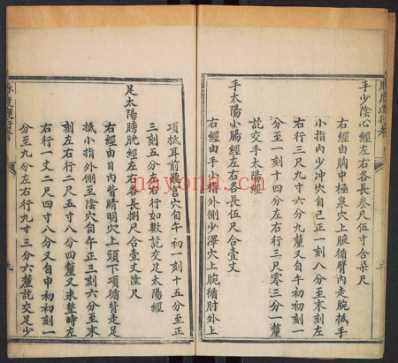 手少陰心經左右各長叁尺伍寸合柒尺
右經由胸中極泉穴上腕循臂內走腕抵手
小指內少冲穴自己正一刻八分至末刻左
右行三尺九寸六分九釐又自午初初刻一
分至一刻十四分左右行三尺零三分一釐
訖交手太陽經
手太陽小腸經左右各長伍尺合壹丈
右經由手小指外側少澤穴上腕循肘外上
項抵耳前聽宮穴自午初一刻十五分至正
三刻五分左右行如數訖交足太陽經
足太陽膀胱經左右各長捌尺合壹丈陸尺
右經由目內眥睛明穴上頭下項循脊足走
抵小指外側至陰穴自午正三刻六分至末
刻左右行二尺五寸八分四釐又未整時左
右行一丈二尺四寸八分又自申初初刻一
分至九分左右行九寸三分六釐訖交足少
nayona.cn